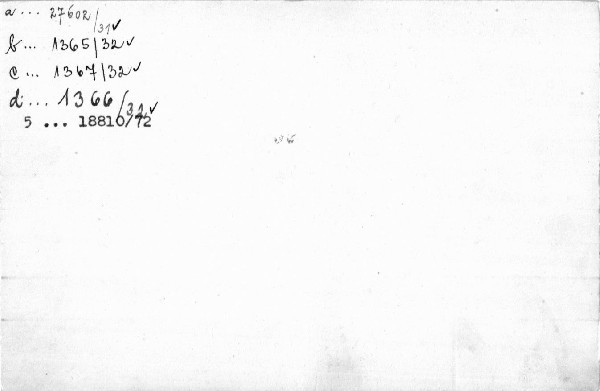 a ... 27602/31 ✓
b ... 1365/32 ✓
c ... 1367/32 ✓
d ... 1366/32 ✓
5 ... 18810/72